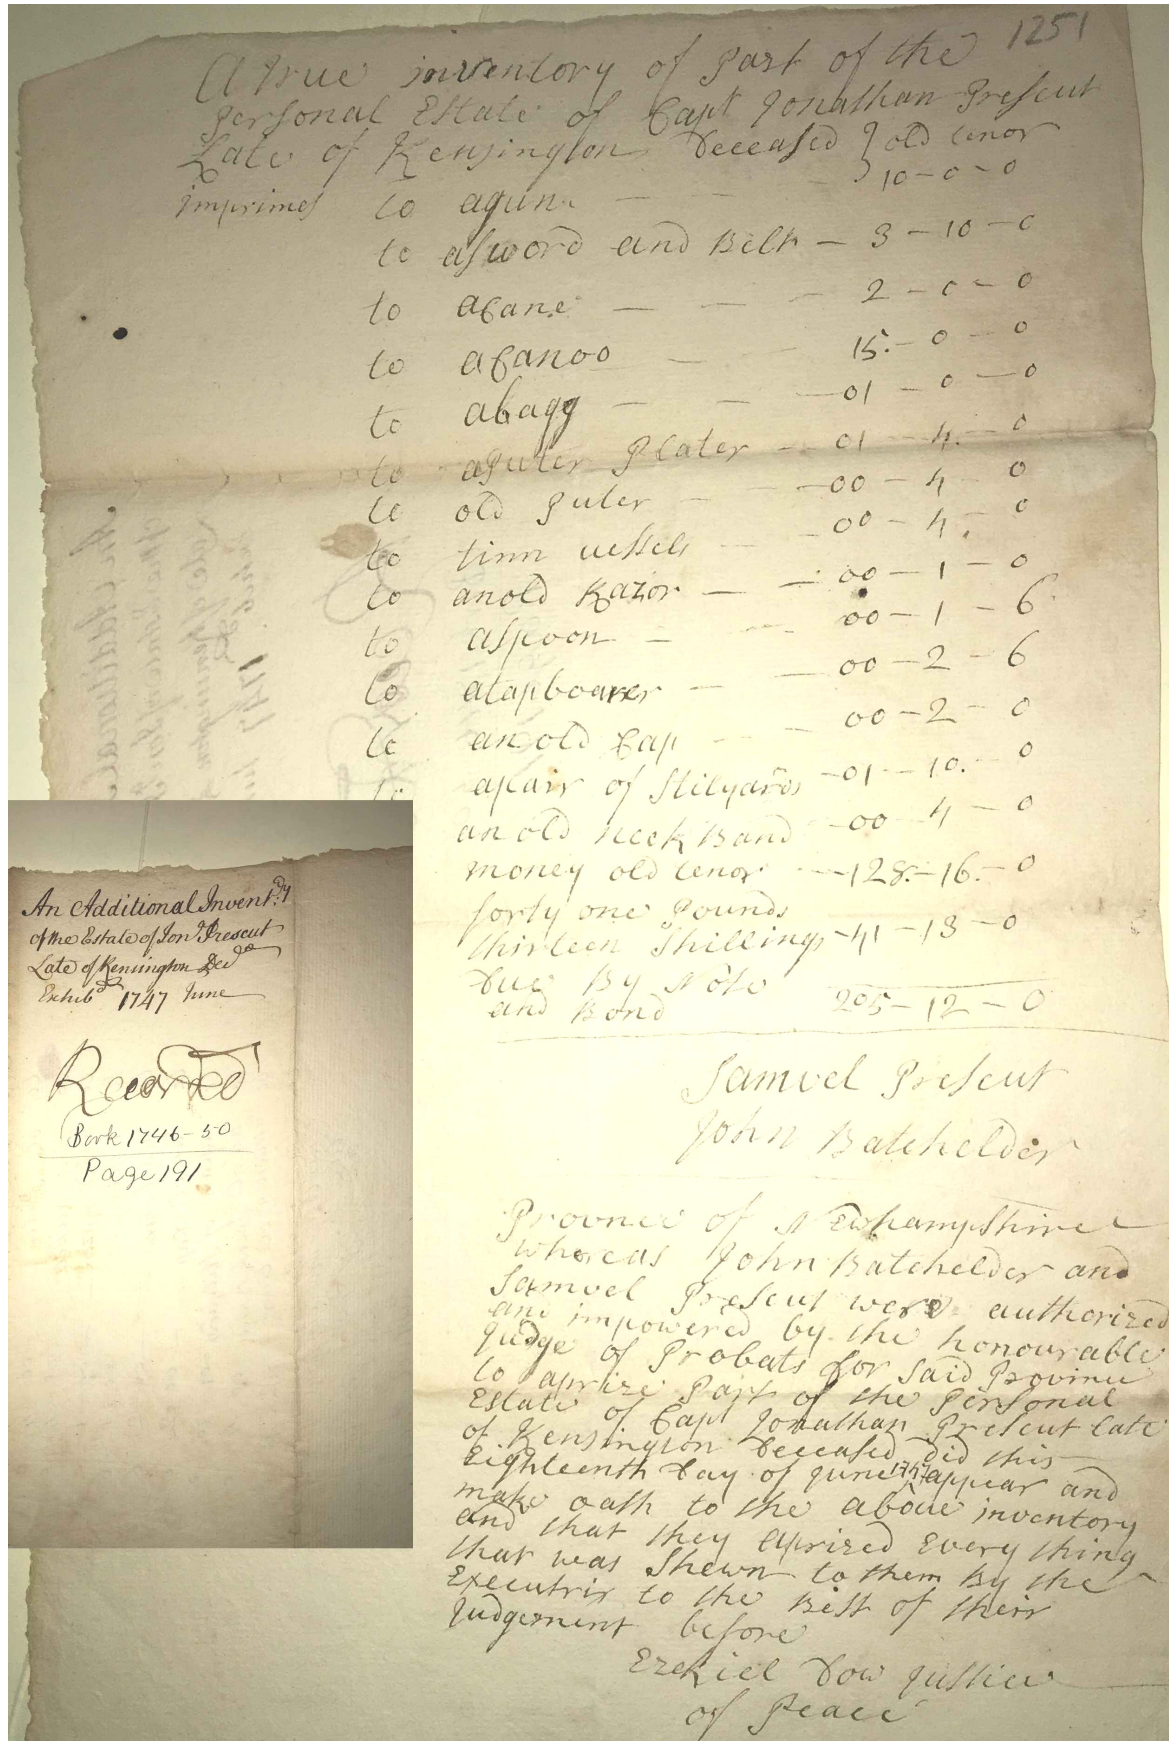 1251
A true inventory of Part of the
Personal Estate of Capt Jonathan Prescut
Late of Kensington Deceased } old tenor
imprimes to agun — 10-0-0
to asword and Belt — 3-10-0
to aCane — — — 2-0-0
to aCanoo — — 15-0-0
to abagg — — — 01-0-0
to aPuter Plater — 01-4-0
to old Puter — — 00-4-0
to tinn vessels — 00-4-0
to anold Razor — — 00-1-0
to aspoon — — 00-1-6
to atapboarer — — 00-2-6
to an old Cap — — 00-2-0
to apair of Stilyards — 01-10-0
an old neck Band — 00 4-0
money old tenor — 128-16-0
forty one Pounds
thirteen Shillings — 41-13-0
Due By Note
and Bond 205-12-0
Samuel Prescut
John Batchelder
Provnce of Newhampshire
whereas John Batchelder and
Samuel Prescut were authorized
and impowered by the honourable
Judge of Probats for Said Province
to aprize Part of the Personal
Estate of Capt Jonathan Prescut late
of Kensington Deceased did this
Eighteenth Day of June 1747 appear and
make oath to the above inventory
and that they aprized Every thing
that was Shewn to them By the
Executrix to the Best of their
Judgement before
Ezekiel Dow Justice
of Peace
An Additional Inventry
of the Estate of Jona Prescut
Late of Kensington Decd
Exhibd 1747 June
Recorded
Book 1746-50
Page 191